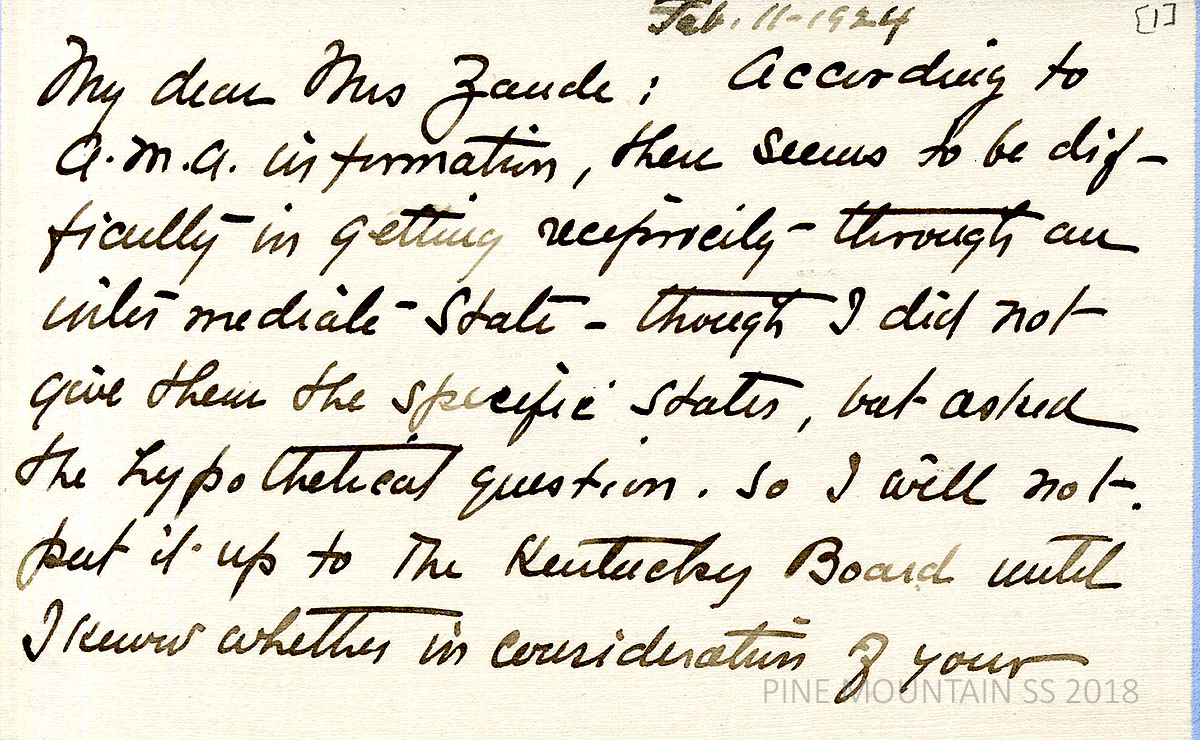 Feb. 11-1924
[1]
My dear Mrs Zande; According to
A.M.A. information, there seems to be dif-
ficulty in getting recipricity through an
intermediate State - though I did not
give them the specific states, but asked
the hypothetical question. So I will not
put it up to The Kentucky Board until
I know whether in consideration of your
PINE MOUNTAIN SS 2018